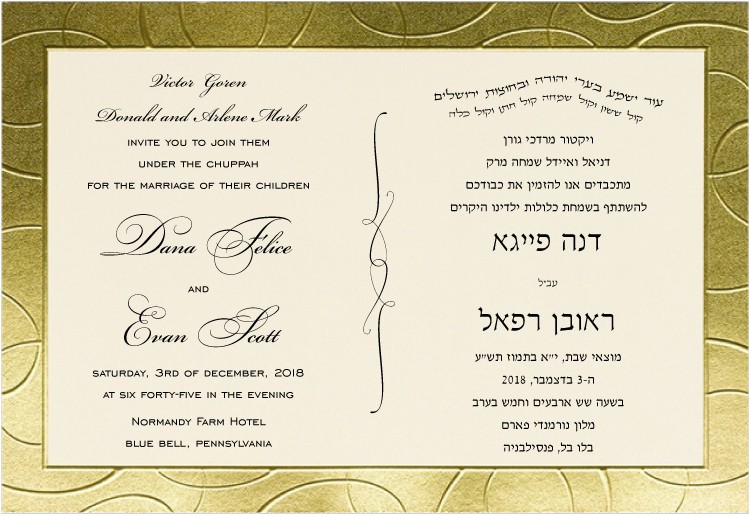 Victor Goren
Donald and Arlene Mark
INVITE YOU TO JOIN THEM
UNDER THE CHUPPAH
FOR THE MARRIAGE OF THEIR CHILDREN
Dana Felice
AND
Evan Scott
SATURDAY, 3RD OF DECEMBER, 2018
AT SIX FORTY-FIVE IN THE EVENING
NORMANDY FARM HOTEL
BLUE BELL, PENNSYLVANIA
עוד ישמע בערי יהודה ובחוצות ירושלים
קול ששון וקול שמחה קול חתן וקול כלה
ויקטור מרדכי גורן
דניאל ואיידל שמחה מרק
מתכבדים אנו להזמין את כבודכם
להשתתף בשמחת כלולות ילדינו היקרים
דנה פייגא
עב״ל
ראובן רפאל
מוצאי שבת, י״א בתמוז תש״ע
ה-3 בדצמבר, 2018
בשעה שש ארבעים וחמש בערב
מלון נורמנדי פארם
בלו בל, פנסילבניה